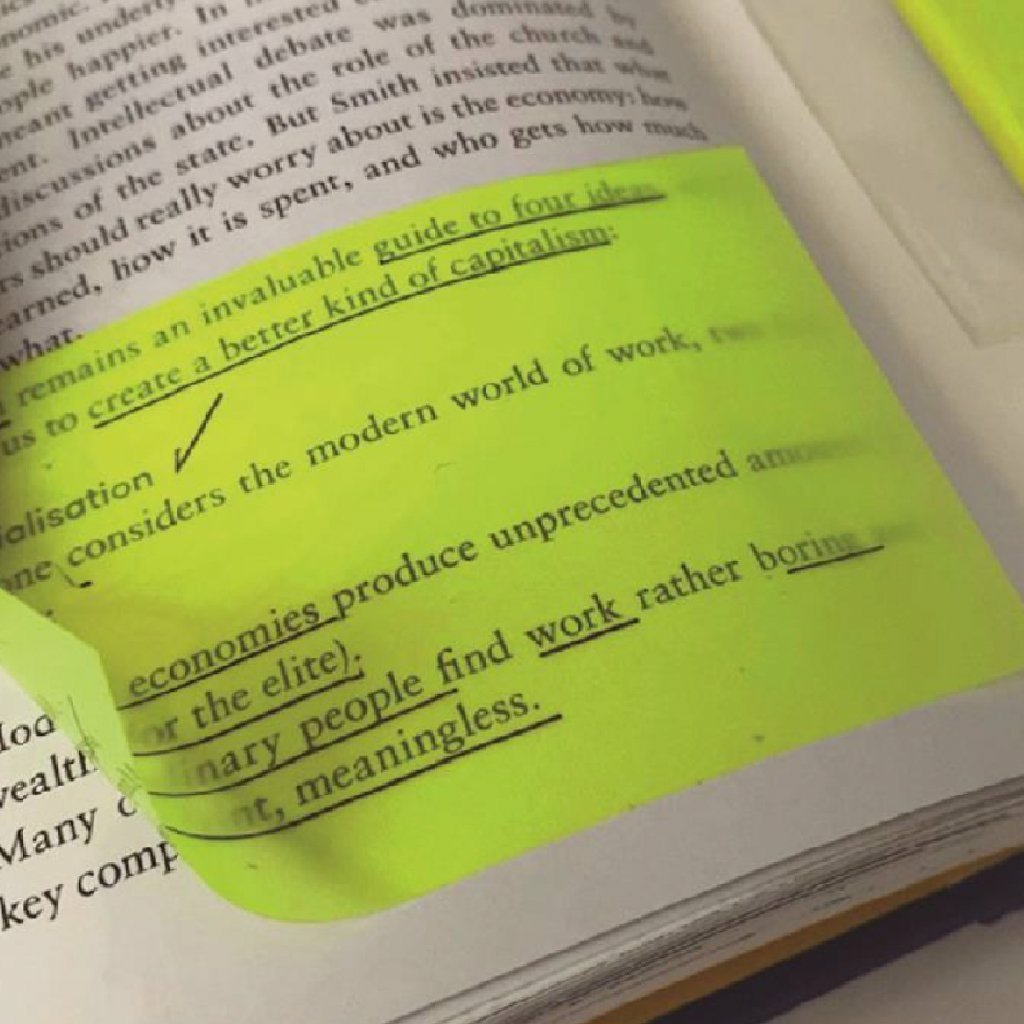 nomic. In
his underly
ople happier. In
meant getting interested
ent. Intellectual debate was dominated by
discussions about the role of the church and
ions of the state. But Smith insisted that what
rs should really worry about is the economy: how
earned, how it is spent, and who gets how much
what.
remains an invaluable guide to four ideas
us to create a better kind of capitalism:
ialisation
one considers the modern world of work, two
economies produce unprecedented amounts
or the elite).
inary people find work rather boring
nt, meaningless.
wealth
Many
key comp